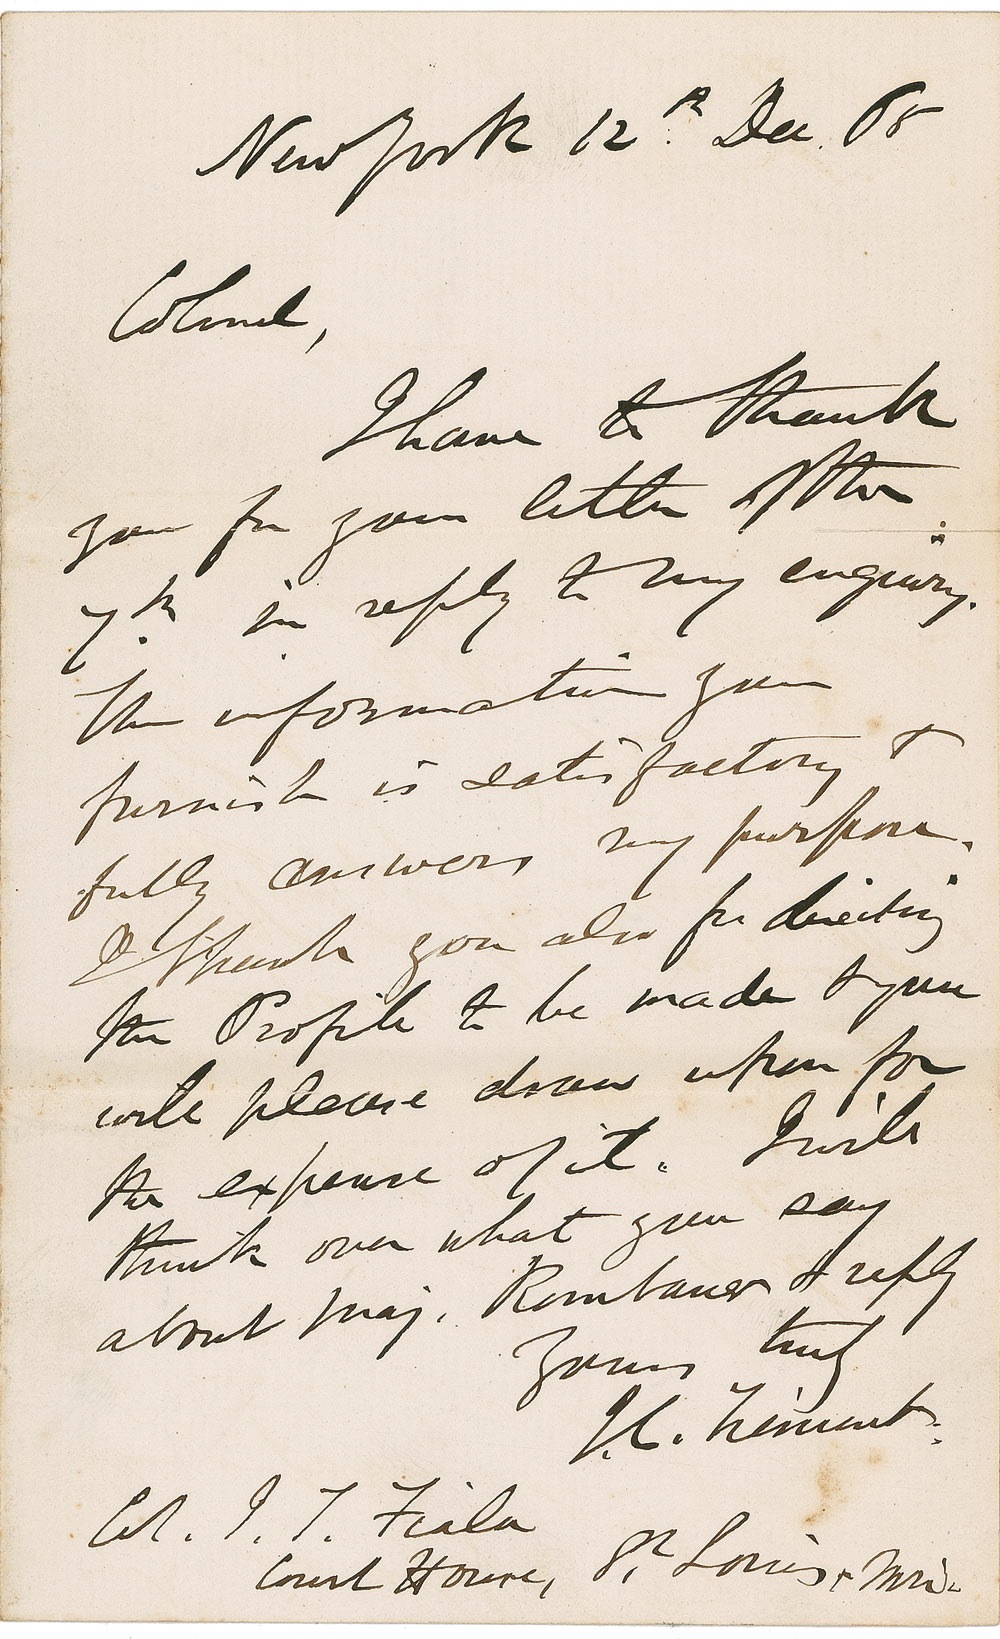 New York 12th Dec. 65
Colonel,
I have to thank
you for your letter of the
7th in reply to my enquiry.
The information you
furnish is satisfactory &
fully answers my purpose.
I thank you also for directing
the Profile to be made & you
will please draw upon for
the expense of it. I will
think over what you say
about Maj. Rombauer & reply
Yours truly
J.C. Frémont.
Col. J. T. Fiala
Court House, St. Louis, Mri.